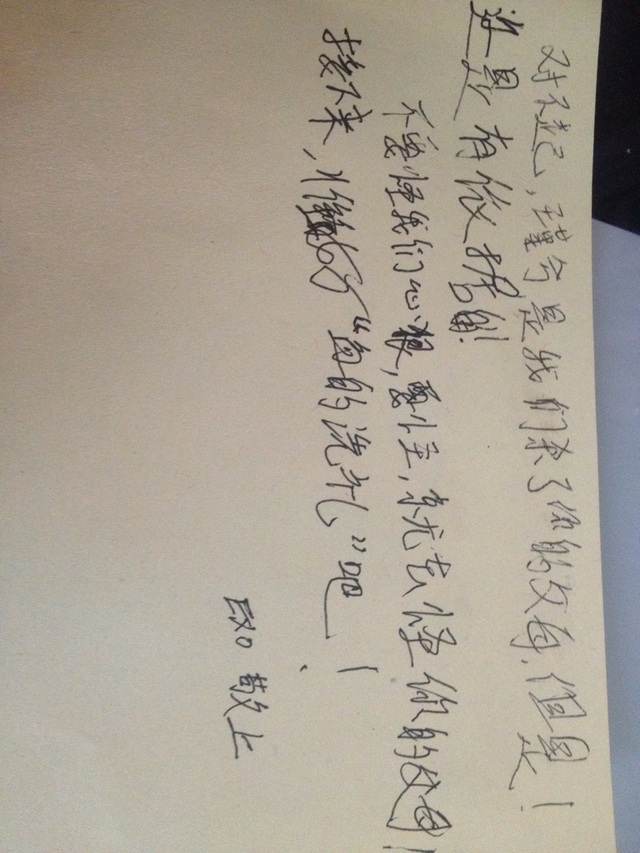 对不起,瑾兮是我们杀了你的父母,但是!
这是有依据的!
不要怪我们心狠,要怪,就去怪你的父母!
接下来,准备好“血的洗礼”吧!
EXO 敬上